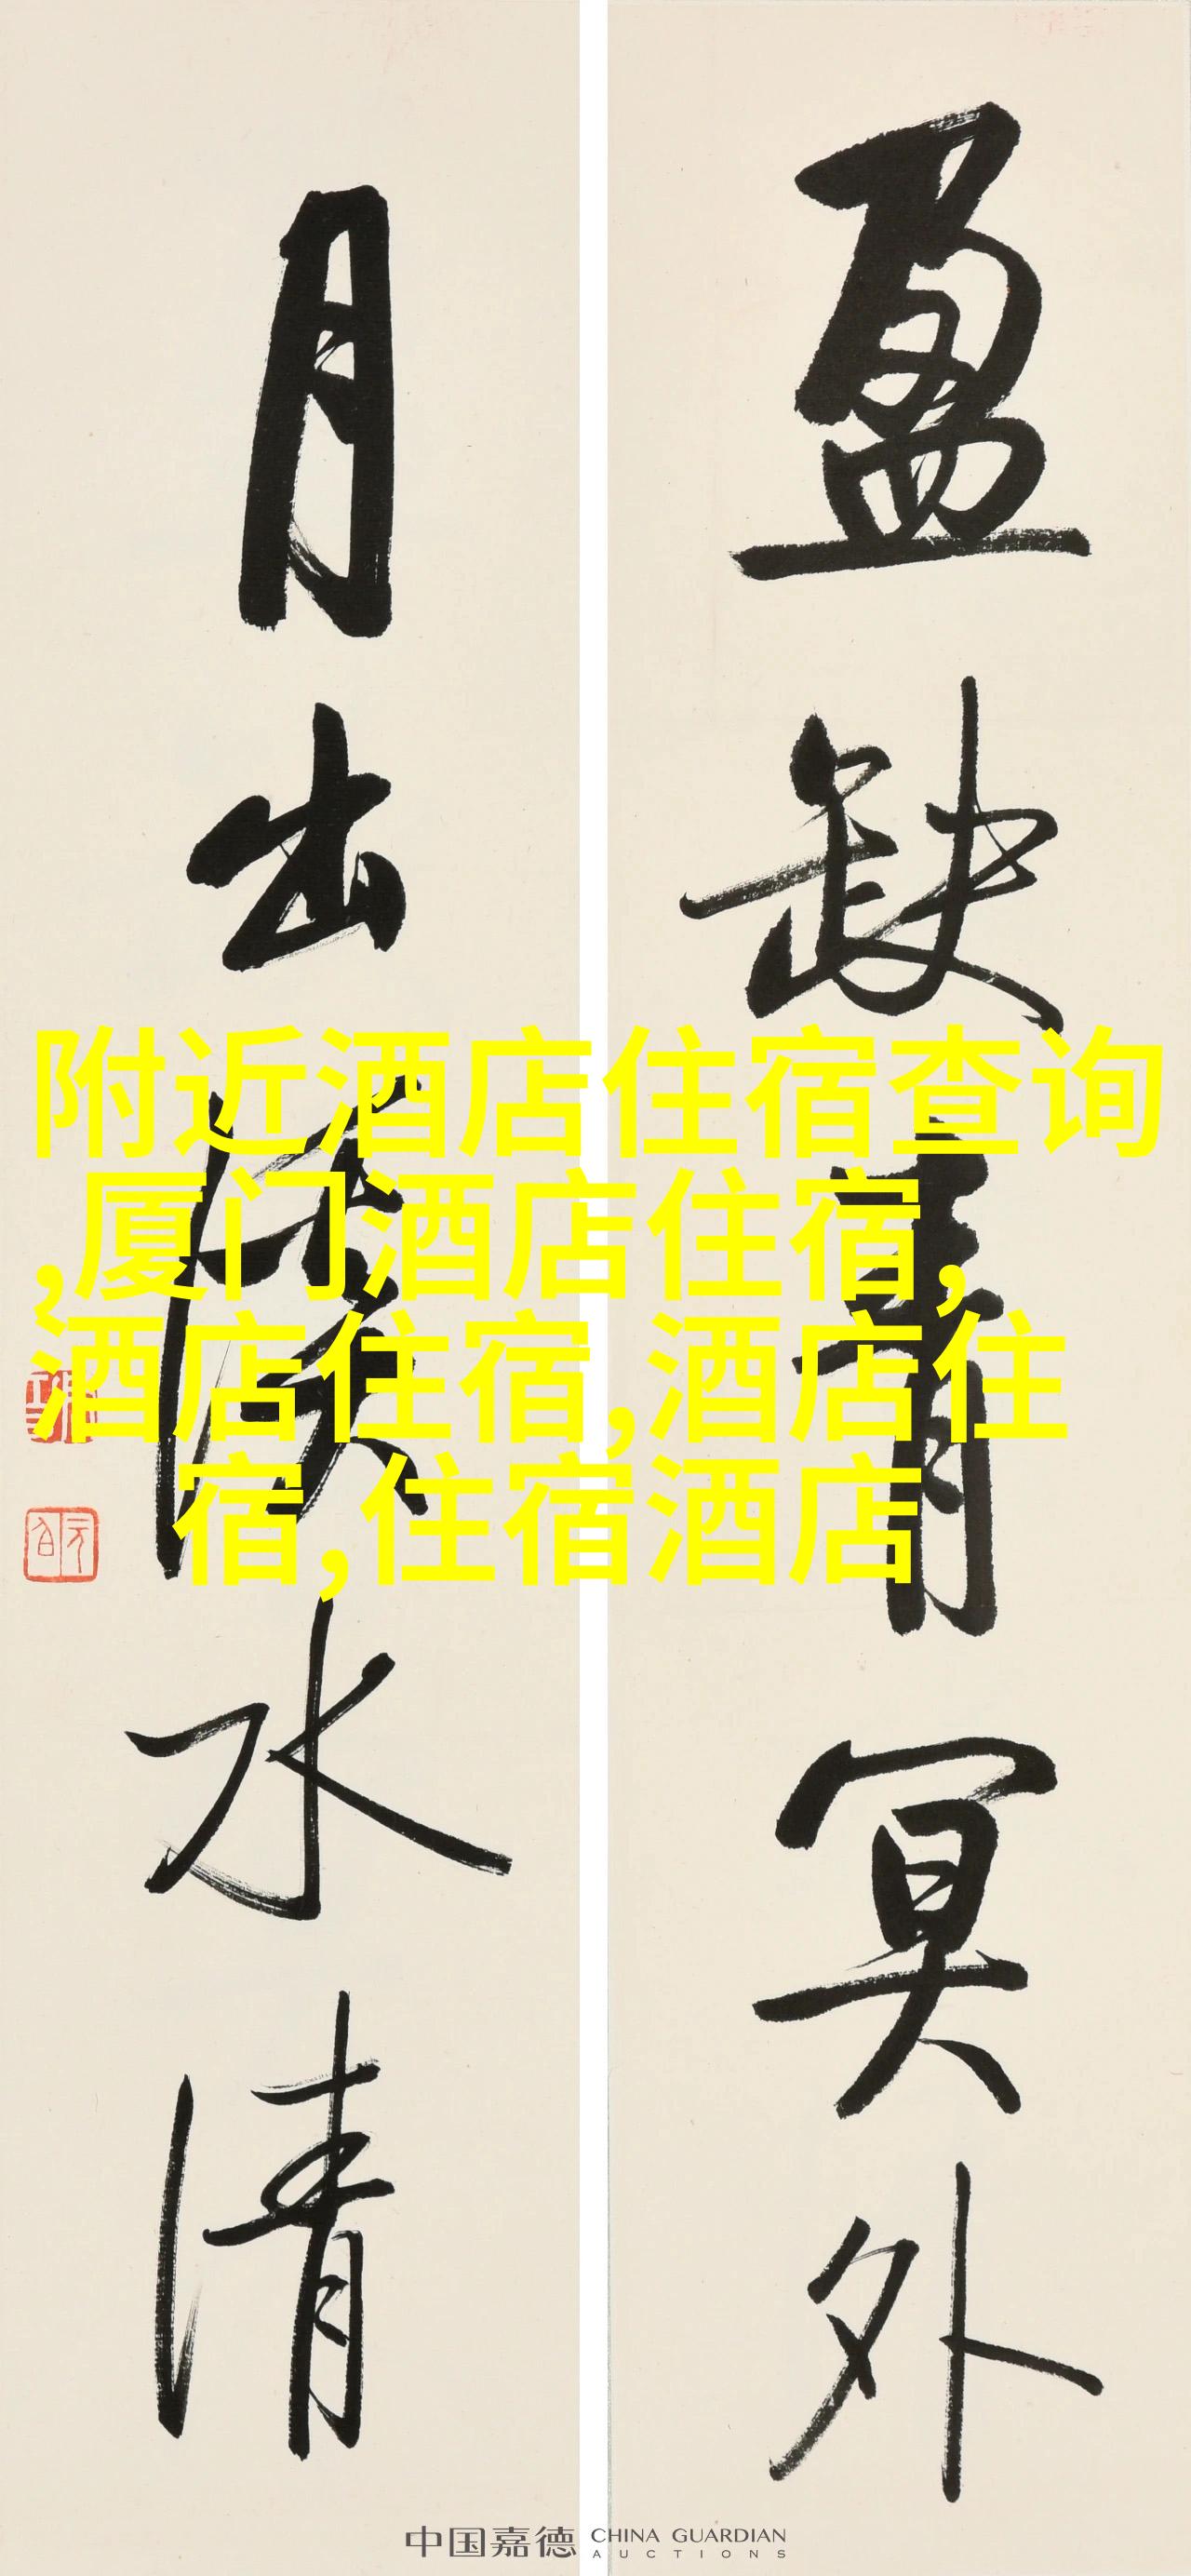 盈缺青冥外
月出水清
附近酒店住宿查询
,厦门酒店住宿,
酒店住宿,酒店住
宿,住宿酒店
中国嘉德 CHINA GUARDIAN
AUCTIONS